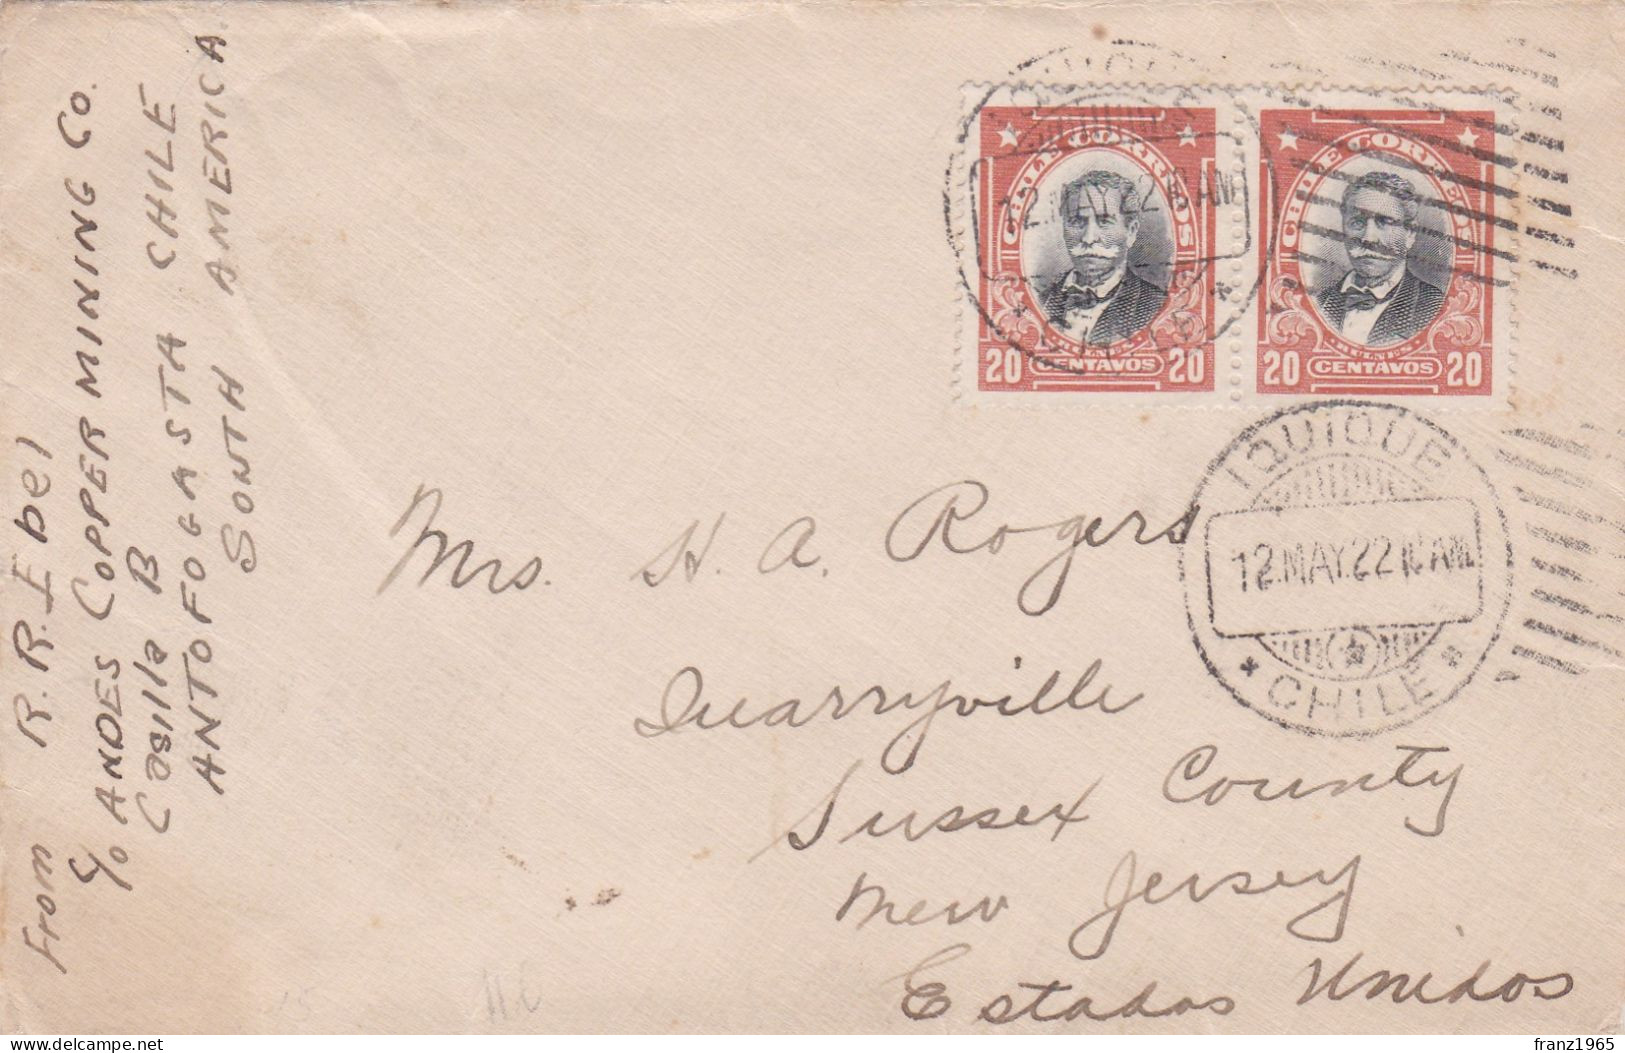 From R.R. Ebel
c/o ANDES COPPER MINING Co.
Casilla B
ANTOFOGASTA CHILE
SOUTH AMERICA
CHILE CORREOS
20 BULNES CENTAVOS 20
CHILE CORREOS
20 BULNES CENTAVOS 20
IQUIQUE
12.MAY.22 10 AM
CHILE
IQUIQUE
12.MAY.22 10 AM
* CHILE *
Mrs. H. A. Rogers
Quarryville
Sussex County
New Jersey
Estados Unidos
delcampe.net
franz1965